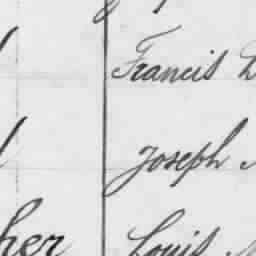 Francis
Joseph
her Louis